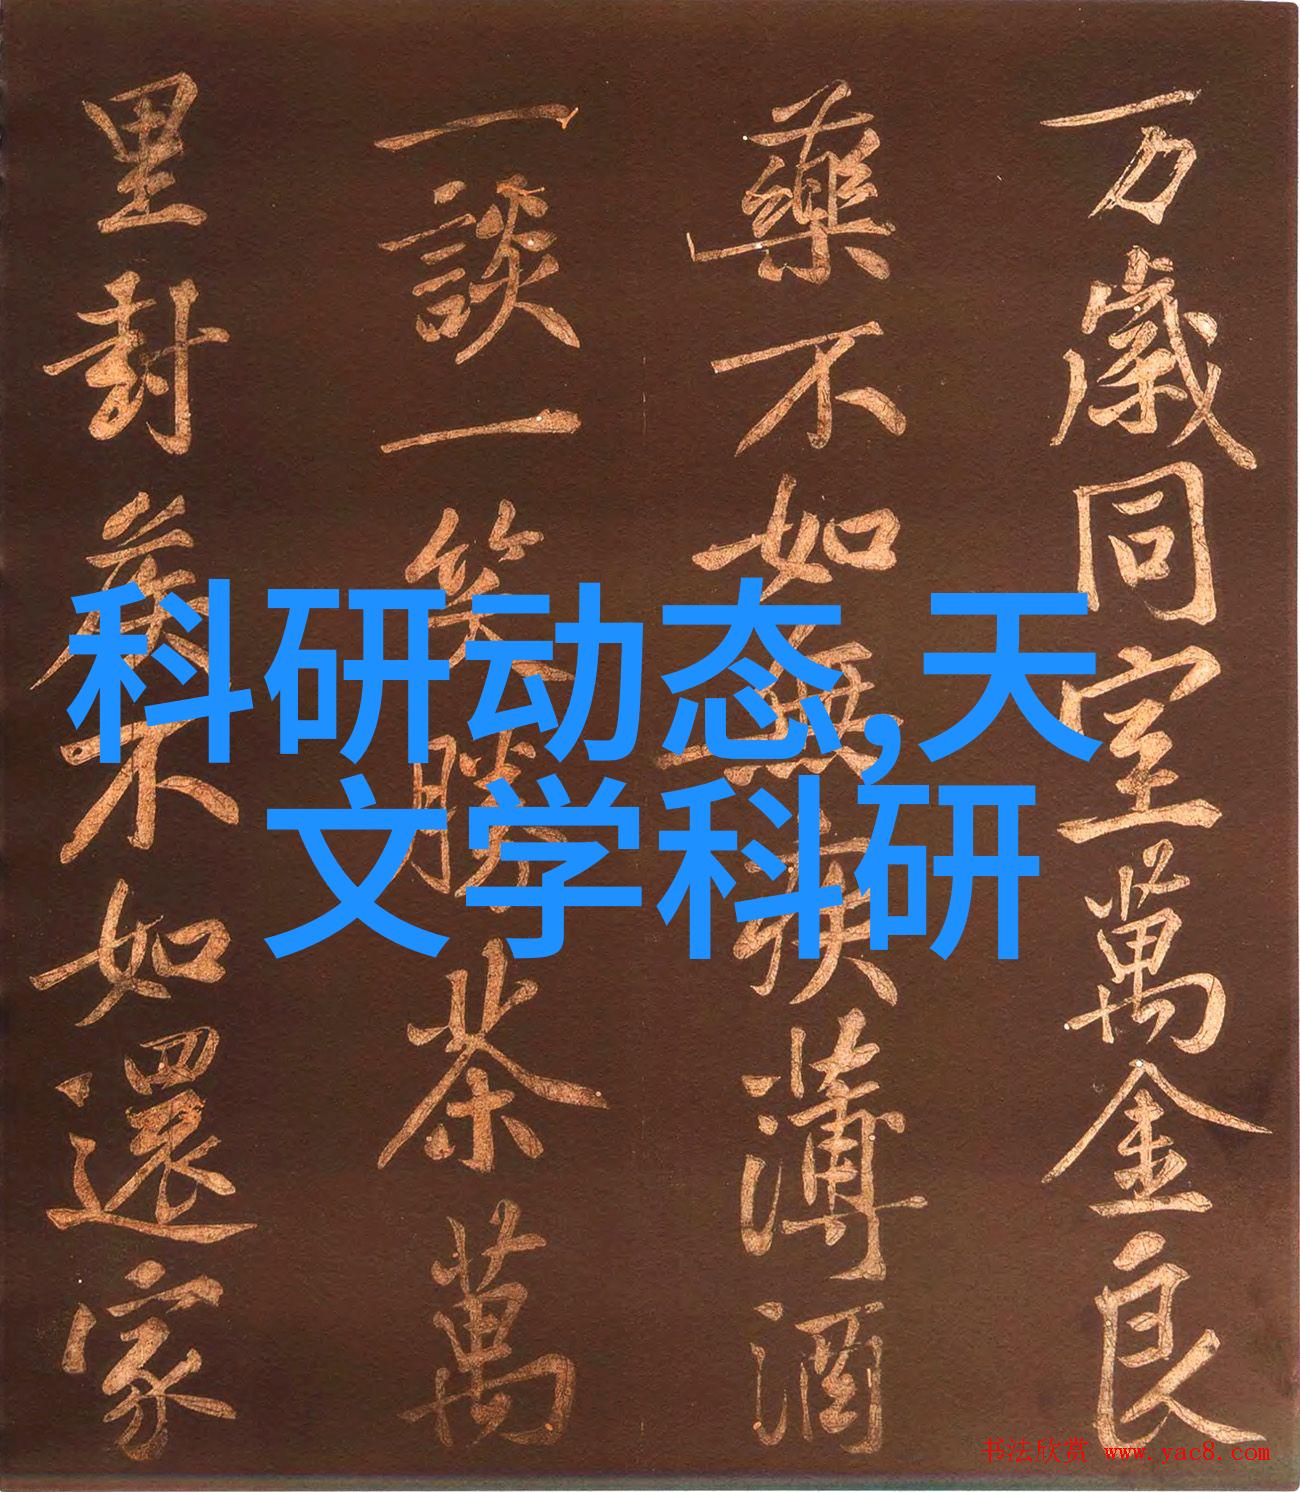 万歲同室萬金良
藥不如無疾薄酒
一談一笑勝茶萬
里封侯不如還家
科研动态,天
文学科研
书法欣赏 www.yac8.com